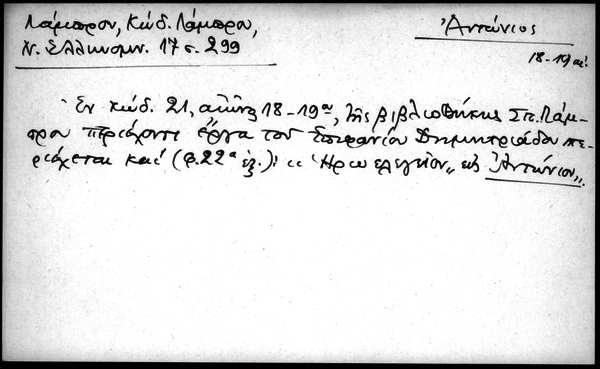 Λάμπρου, Κώδ. Λάμπρου,
Ν. Ἑλληνομν. 17 σ. 299
Ἀντώνιος
18-19 αἰ.
Ἐν κώδ. 21, αἰῶνος 18-19ου, τῆς βιβλιοθήκης Σπ. Λάμ-
πρου περιέχοντι ἔργα τοῦ Ἐπιφανίου Δημητριάδου πε-
ριέχεται καὶ (φ. 22α ἑξ.): "Ἡρωελεγεῖον" εἰς Ἀντώνιον".